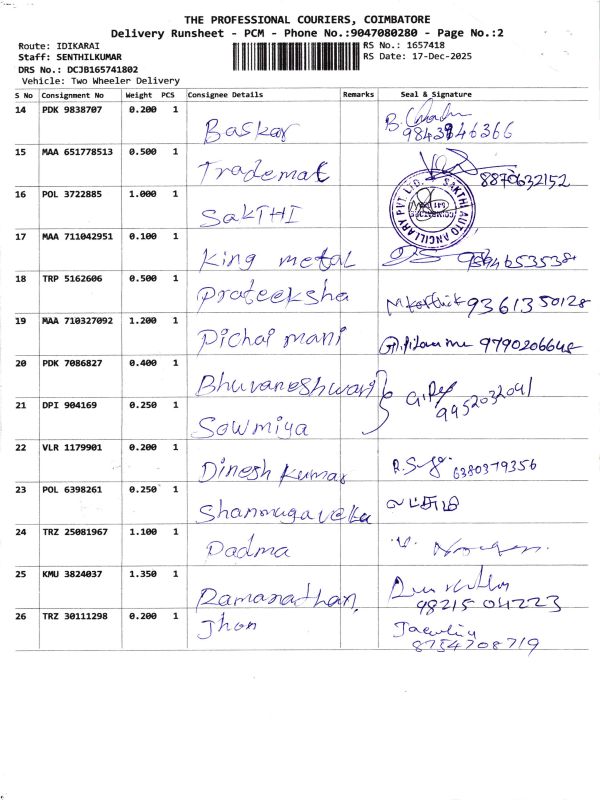 THE PROFESSIONAL COURIERS, COIMBATORE
Delivery Runsheet - PCM - Phone No.:9047080280 - Page No.:2
Route: IDIKARAI
RS No.: 1657418
Staff: SENTHILKUMAR
RS Date: 17-Dec-2025
DRS No.: DCJB165741802
Vehicle: Two Wheeler Delivery
S No Consignment No Weight PCS Consignee Details Remarks Seal & Signature
14 PDK 9838707 0.200 1 Baskar
15 MAA 651778513 0.500 1 Trademat 8870632152
16 POL 3722885 1.000 1 SaKTHI SAKTHI AUTO ANCILLARY PVT LTD.
17 MAA 711042951 0.100 1 King metal
18 TRP 5162606 0.500 1 Prateeksha 9361350128
19 MAA 710327092 1.200 1 Pichai mani 9790206648
20 PDK 7086827 0.400 1 Bhuvaneshwari
21 DPI 904169 0.250 1 Sowmiya 9952032041
22 VLR 1179901 0.200 1 Dinesh Kumar 6380379356
23 POL 6398261 0.250 1 Shanmugavella
24 TRZ 25081967 1.100 1 Padma
25 KMU 3824037 1.350 1 Ramanathan, 98215 04223
26 TRZ 30111298 0.200 1 Jhon 8754708719